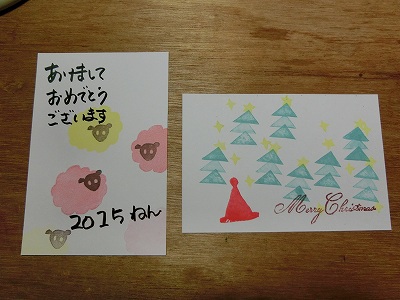 あけまして
おめでとう
ございます
2015ねん
Merry Christmas